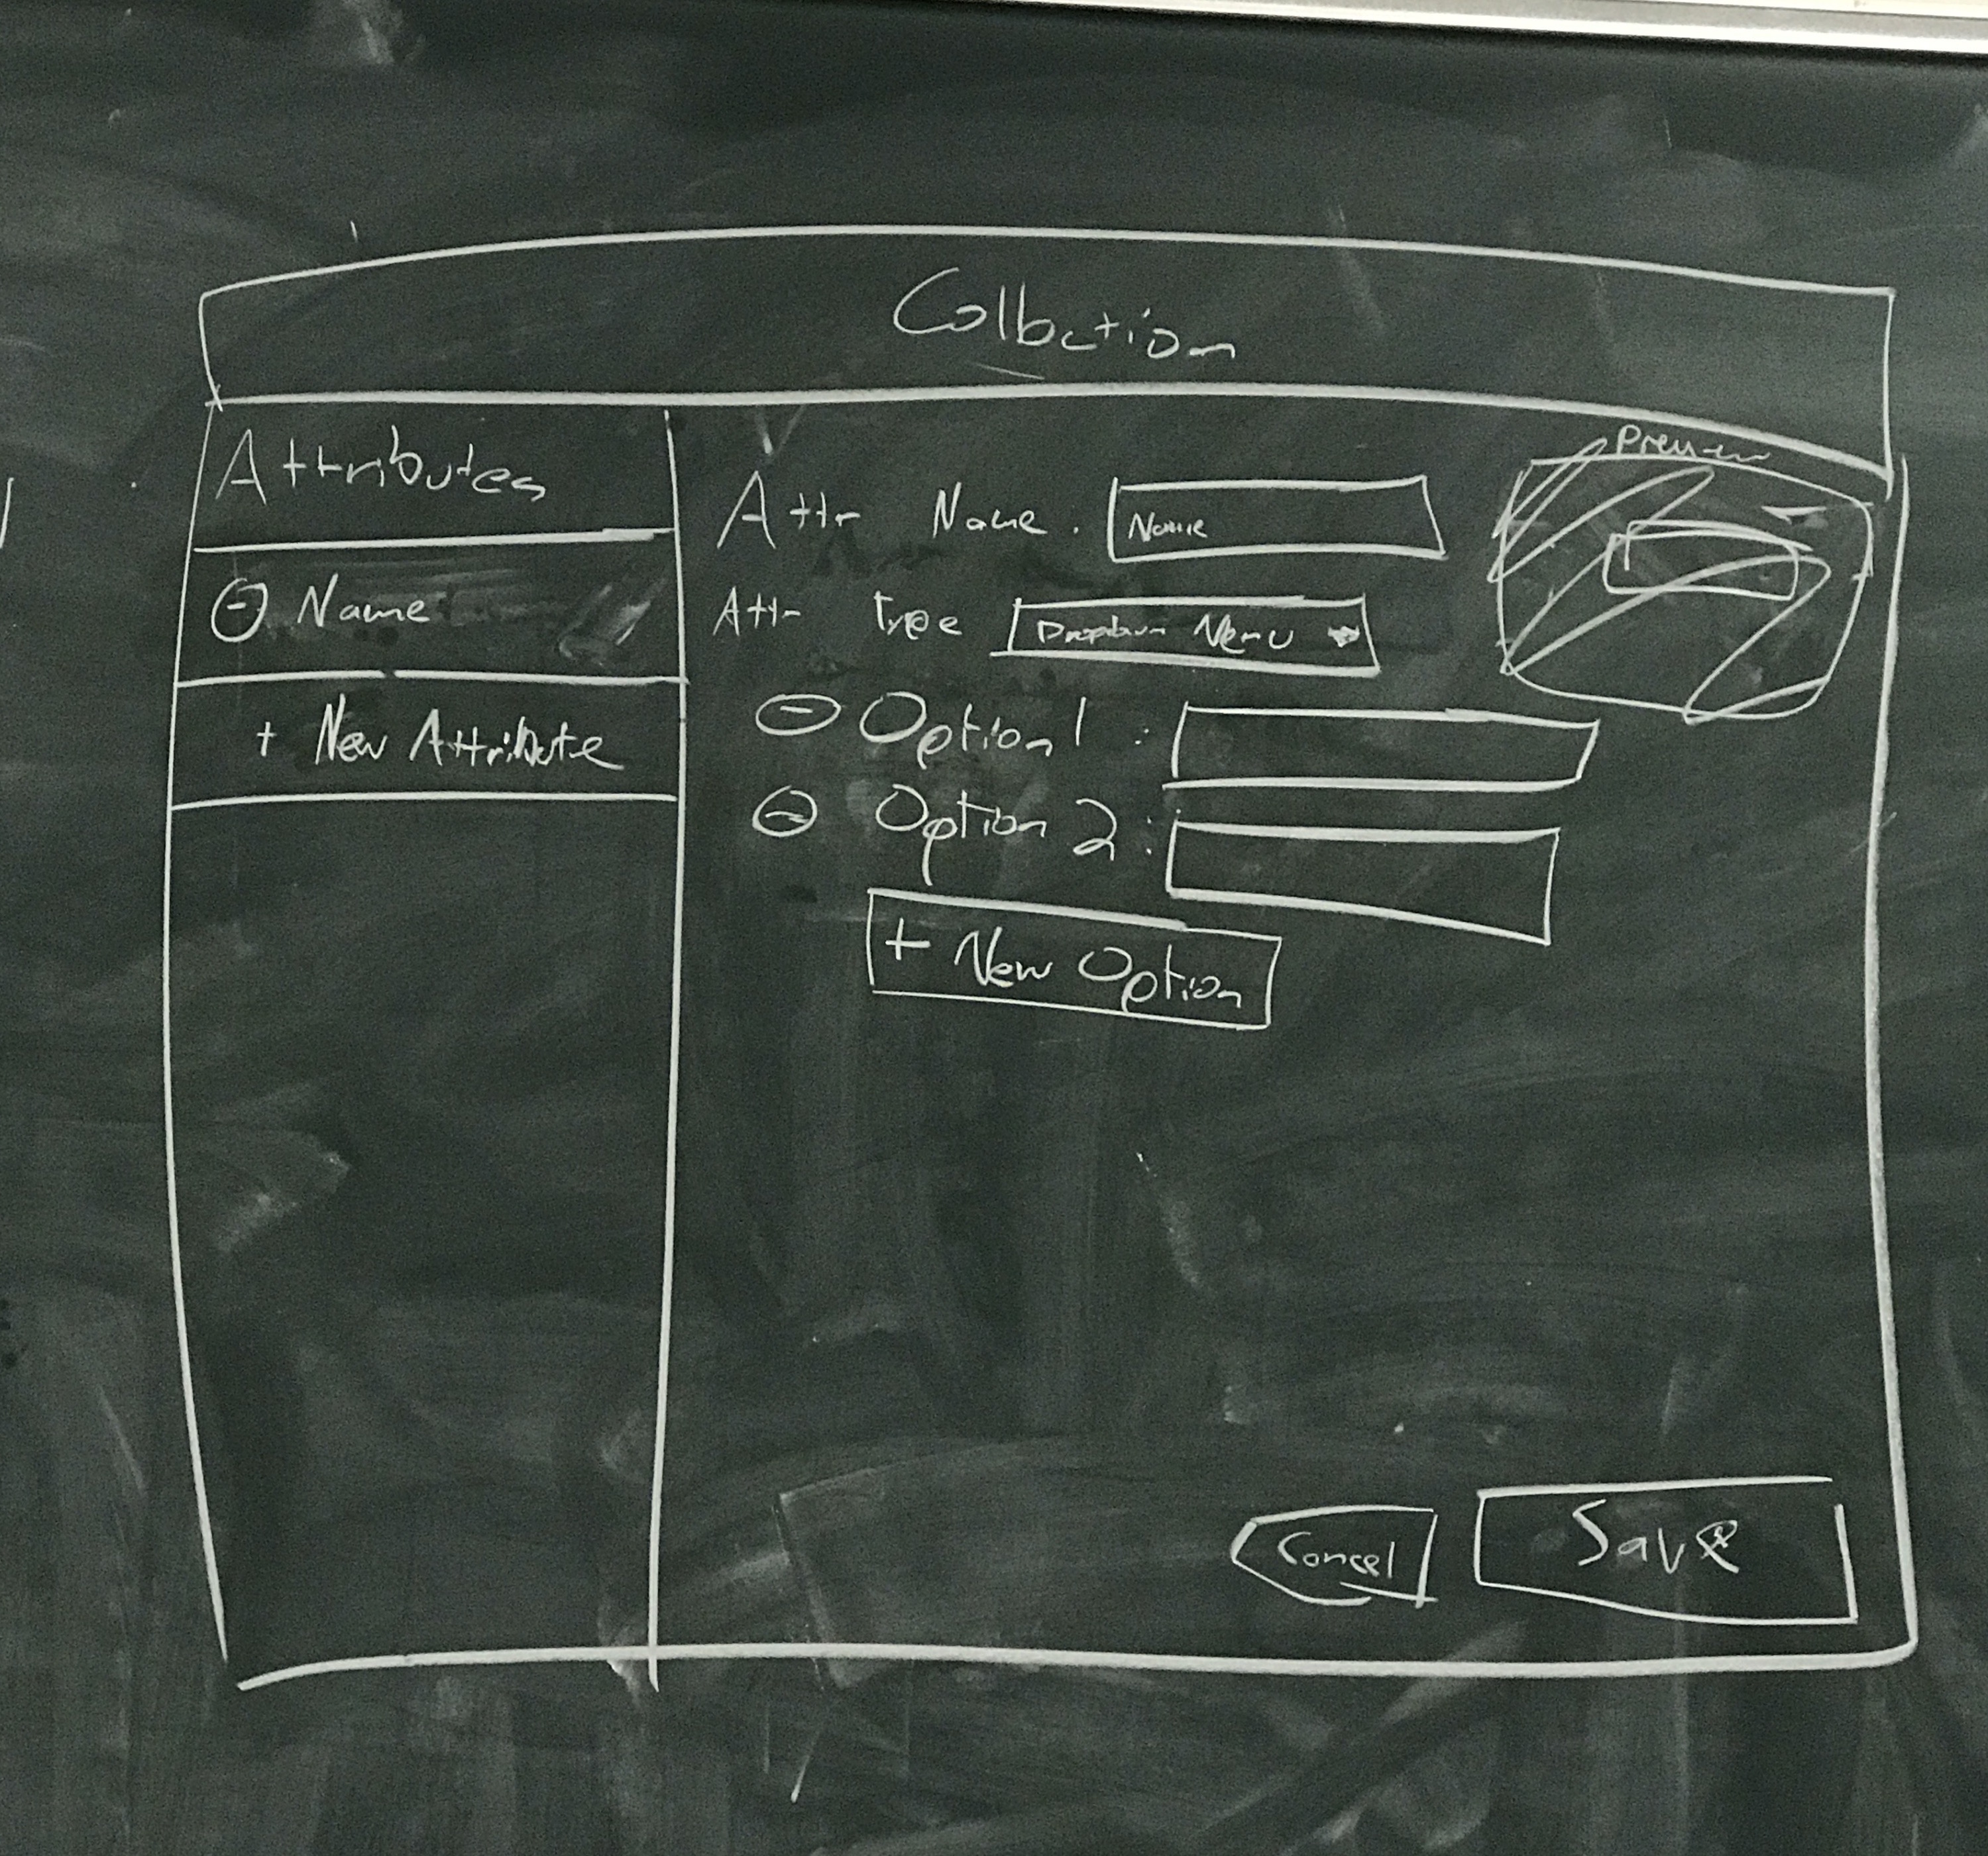 Collection
Attributes
⊖ Name
+ New Attribute
Attr Name : Name
Attr Type Dropdown Menu
⊖ Option 1 :
⊖ Option 2 :
+ New Option
Preview
Cancel
Save